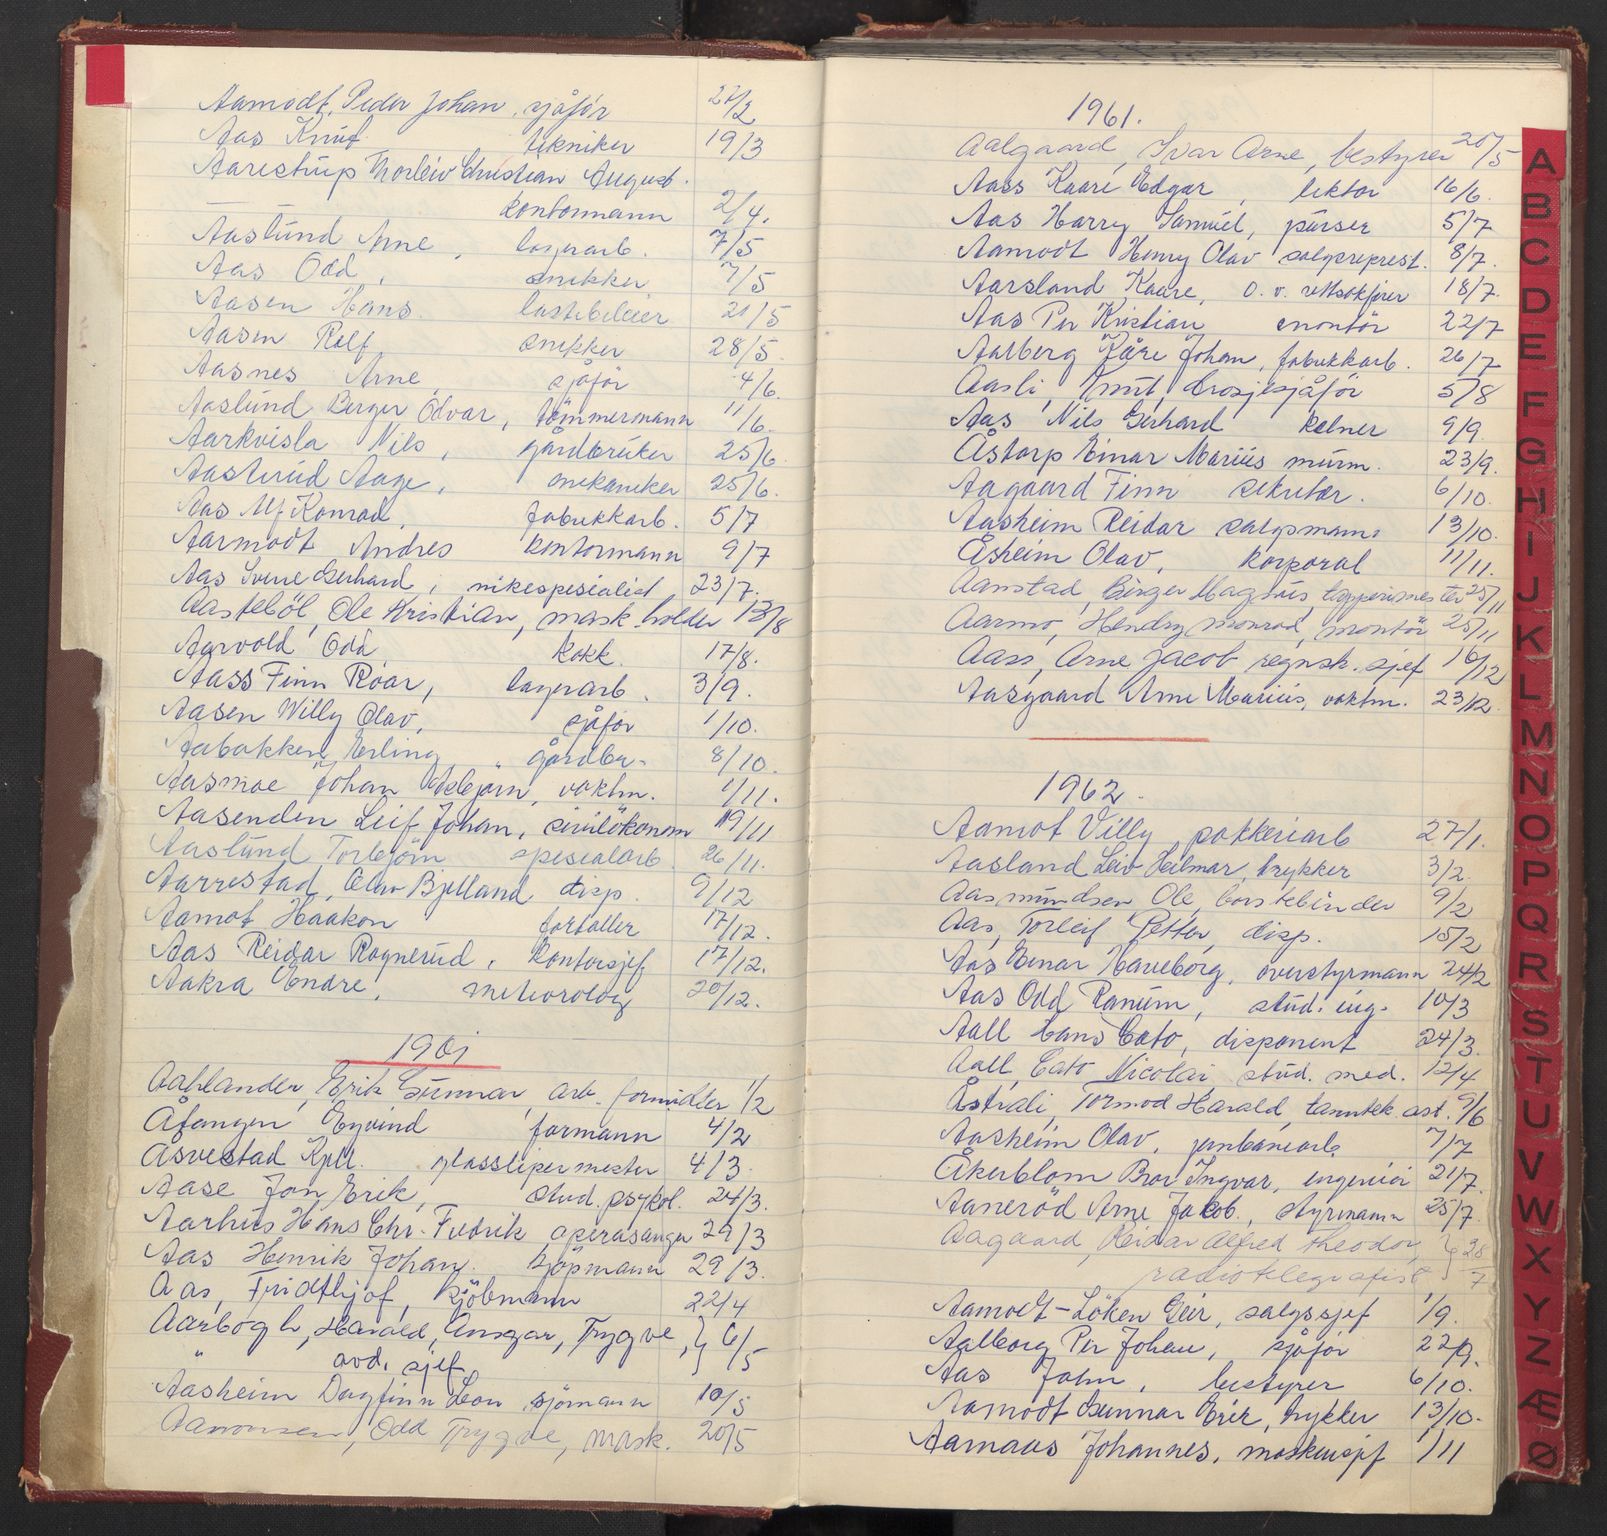 Aamodt, Peder Johan, sjåför 27/2
Aas Knut tekniker 19/3
Aarestrup Thorleiv Christian August.
kontormann 2/4.
Aaslund Arne, lagerarb. 7/5
Aas Odd, snekker 7/5
Aasen Hans. lastebileier 21/5
Aasen Rolf snekker 28/5.
Aasnes Arne, sjåför 4/6.
Aaslund Berger Odvar, tömmermann 11/6.
Aarkvisla Nils, gårdbruker 25/6.
Aasterud Aage, mekaniker 25/6.
Aas Alf Konrad, fabrikkarb. 5/7
Aarmodt Andres kontormann 9/7
Aas Svene Gerhard, nikespesialist 23/7.
Aasteböl, Ole Kristian, mask.holder 13/8
Aarvold Odd kokk. 17/8.
Aass Finn Roar, lagerarb. 3/9.
Aasen Willy Olav, sjåför 1/10.
Aabakken Erling, gårdbr. 8/10.
Aasmoe Johan Asbjørn, vaktm. 1/11.
Aasenden Leif Johan, sivilökonom 19/11
Aaslund Torbjörn spesialarb. 26/11.
Aarrestad, Olav Bjelland disp. 9/12
Aamot Haakon forfatter 17/12.
Aas Reidar Rognerud, kontorsjef 17/12.
Aakra Endre, meteorolog 20/12.
1961
Aahlander, Erik Gunnar, arb. formidler 1/2
Åfangen Eyvind formann 4/2
Åsvestad Kjell. glasslipermester 4/3.
Aase Jon Erik, stud. psykol. 24/3.
Aarhus Hans Chr. Fredrik operasanger 29/3
Aas Henrik Johan. kjöpmann 29/3.
Aas, Fridthjof, kjöbmann 22/4
Aarbogh, Harald, Ansgar, Trygve, } 6/5
" avd. sjef
Aasheim Dagfinn Leon, sjömann 10/5
Aamonsen, Odd Trygve, mask. 20/5
1961.
Aalgaard, Ivar Arne, bestyrer 20/5
Aass Kaare Edgar, lektor 16/6.
Aas Harry Samuel, purser 5/7
Aamodt Henry Olav salgsreprest. 8/7.
Aarsland Kaare, o.r. rettsakfører 18/7.
Aas Per Kristian montör 22/7
Aarberg Kåre Johan, fabrikkarb. 26/7
Aasli, Knut, drosjesjåför 5/8
Aas Nils Gerhard kelner 9/9
Åstorp Einar Marius murm. 23/9.
Aagaard Finn sekretær. 6/10.
Aasheim Reidar salgsmann 13/10.
Åsheim Olav, korporal 11/11.
Aanstad, Birger Magnus, tapperimester 25/11
Aarmo, Hendry Monrad, montör 25/11
Aass, Arne Jacob regnsk. sjef 16/12
Aasgaard Arne Marius, vaktm. 23/12.
1962.
Aamot Villy pakkeriarb 27/1.
Aasland Leiv Hilmar, trykker 3/2.
Aasmundsen Ole, börstebinder 9/2
Aas, Torleif Petter, disp. 15/2
Aas Einar Haveborg, overstyrmann 24/2
Aas Odd Ranum, stud. ing. 10/3
Aall Hans Cato, disponent 24/3.
Aall, Cato Nicolai stud. med. 12/4
Åstrøli, Tormod Harald, tanntek. ast. 9/6
Aasheim Olav, jernbanearb. 7/7
Åkerblom Bror Ingvar, ingeniör 21/7.
Aaneröd Arne Jakob., styrmann 25/7.
Aagaard, Reidar Alfred Theodor, } 28/7
radiotelegrafist
Aamodt-Löken Geir, salgssjef 1/9.
Aalborg Per Johan, sjåför 22/9.
Aas John, bestyrer 6/10.
Aamodt Gunnar Erik, trykker 13/10.
Aarnaas Johannes, maskinsjef 1/11
A
B
C
D
E
F
G
H
I
J
K
L
M
N
O
P
Q
R
S
T
U
V
W
X
Y
Z
Æ
Ø